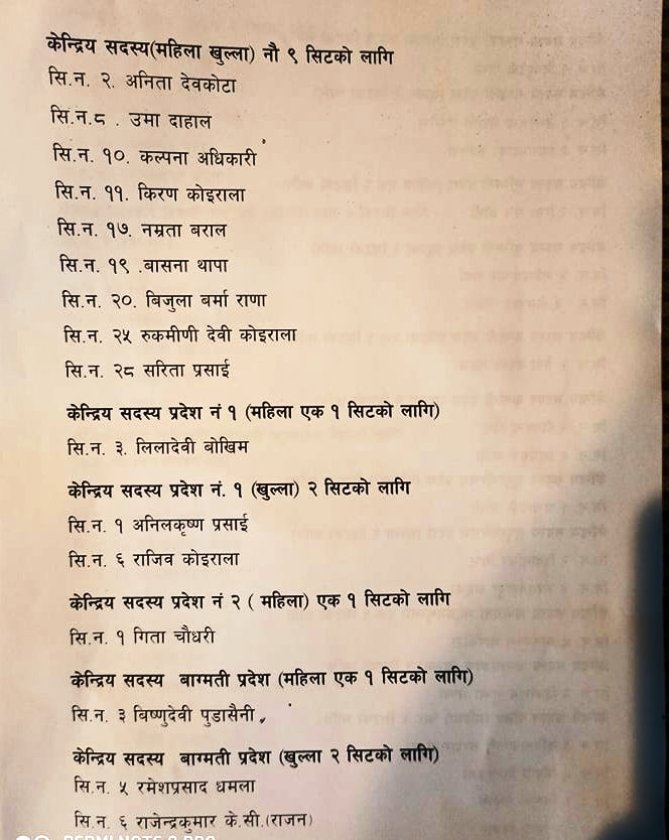 केन्द्रिय सदस्य(महिला खुल्ला) नौ ९ सिटको लागि
सि.न. २. अनिता देवकोटा
सि.न.८ . उमा दाहाल
सि.न. १०. कल्पना अधिकारी
सि.न. ११. किरण कोइराला
सि.न. १७. नम्रता बराल
सि.न. १९ .बासना थापा
सि.न. २०. बिजुला बर्मा राणा
सि.न. २५ रुकमीणी देवी कोइराला
सि.न. २८ सरिता प्रसाई
केन्द्रिय सदस्य प्रदेश नं १ (महिला एक १ सिटको लागि)
सि.न. ३. लिलादेवी बोखिम
केन्द्रिय सदस्य प्रदेश नं. १ (खुल्ला) २ सिटको लागि
सि.न. १ अनिलकृष्ण प्रसाई
सि.न. ६ राजिव कोइराला
केन्द्रिय सदस्य प्रदेश नं २ ( महिला) एक १ सिटको लागि
सि.न. १ गिता चौधरी
केन्द्रिय सदस्य बाग्मती प्रदेश (महिला एक १ सिटको लागि)
सि.न. ३ बिष्णुदेवी पुडासैनी
केन्द्रिय सदस्य बाग्मती प्रदेश (खुल्ला २ सिटको लागि)
सि.न. ५ रमेशप्रसाद धमला
सि.न. ६ राजेन्द्रकुमार के.सी.(राजन)